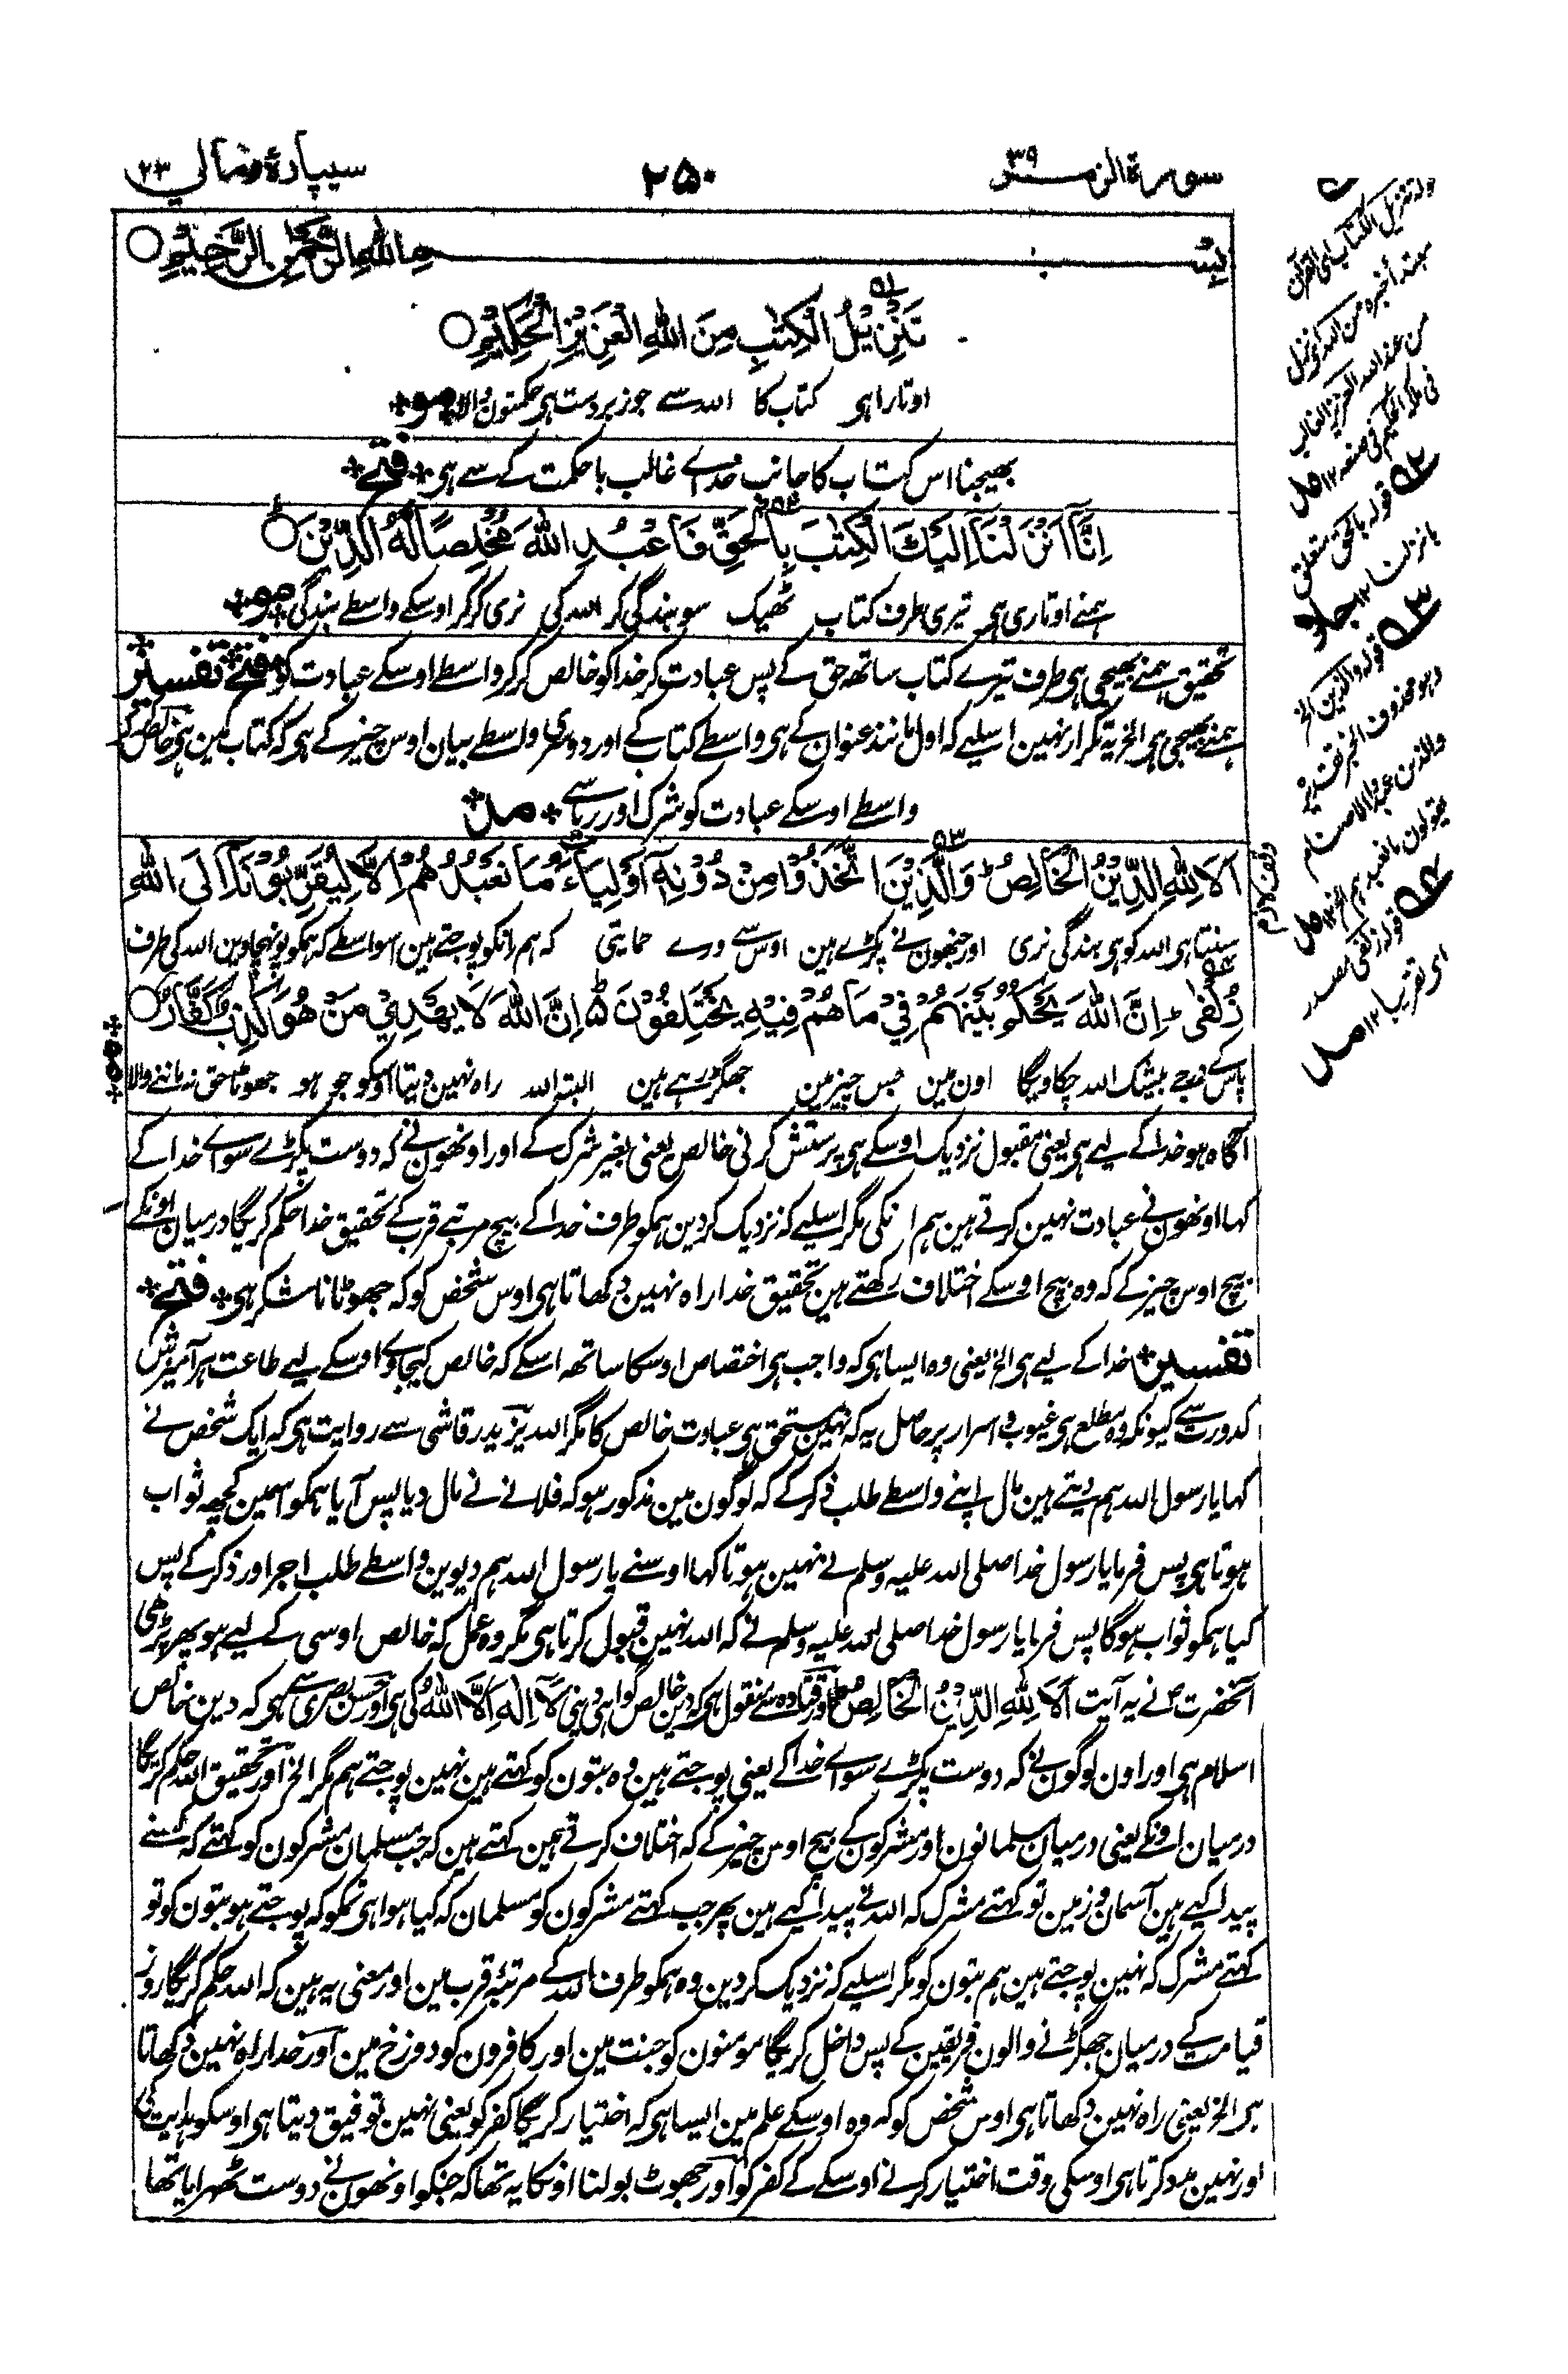 سورة الزمر ۳۹
۲۵۰
سیپارهٔ ومالی ۲۳
بِسْمِ اللهِ الرَّحْمٰنِ الرَّحِيْمِ
تَنْزِيْلُ الْكِتٰبِ مِنَ اللهِ الْعَزِيْزِ الْحَكِيْمِ
اوتارا ہی کتاب کا اللہ سے جو زبردست ہی حکمتون والا مو
بھیجنا اس کتاب کا جانب خداے غالب با حکمت کے سے ہی فتح
اِنَّآ اَنْزَلْنَآ اِلَيْكَ الْكِتٰبَ بِالْحَقِّ فَاعْبُدِ اللهَ مُخْلِصًا لَّهُ الدِّيْنَ
ہمنے اوتاری ہی تیری طرف کتاب ٹھیک سو بندگی کر اللہ کی نری کر کر اوسکے واسطے بندگی مو
تحقیق ہمنے بھیجی ہی طرف تیرے کتاب ساتھ حق کے پس عبادت کر خدا کو خالص کر کر واسطے اوسکے عبادت کو فتح تفسیر
ہمنے بھیجی ہی الخ یہ تکرار نہین اسلیے کہ اول مانند عنوان کے ہی واسطے کتاب کے اور دوسری واسطے بیان اوس چیز کے ہی کہ کتاب مین ہی خالص کر
واسطے اوسکے عبادت کو شرک اور ریا سے مل
اَلَا لِلّٰهِ الدِّيْنُ الْخَالِصُ وَالَّذِيْنَ اتَّخَذُوْا مِنْ دُوْنِهٖٓ اَوْلِيَآءَ مَا نَعْبُدُهُمْ اِلَّا لِيُقَرِّبُوْنَآ اِلَى اللهِ
سنتا ہی اللہ کو ہی بندگی نری اور جنھون نے پکڑے ہین اوس سے ورے حمایتی کہ ہم انکو پوجتے ہین اسواسطے کہ ہمکو پونہچا وین اللہ کی طرف
زُلْفٰى اِنَّ اللهَ يَحْكُمُ بَيْنَهُمْ فِيْ مَا هُمْ فِيْهِ يَخْتَلِفُوْنَ اِنَّ اللهَ لَا يَهْدِيْ مَنْ هُوَ كٰذِبٌ كَفَّارٌ
پاس کے درجے بیشک اللہ چکاویگا اون مین جس چیز مین جھگڑ رہے ہین البتہ اللہ راہ نہین دیتا اوسکو جو ہو جھوٹا حق نہ ماننے والا
آگاہ ہو خدا کے لیے ہی یعنی مقبول نزدیک اوسکے ہی پرستش کرنی خالص یعنی بغیر شرک کے اور اونھون نے کہ دوست پکڑے سواے خدا کے
کہا اونھون نے عبادت نہین کرتے ہین ہم انکی مگر اسلیے کہ نزدیک کر دین ہمکو طرف خدا کے بیچ مرتبے قرب کے تحقیق خدا حکم کریگا درمیان اونکے
بیچ اوس چیز کے کہ وہ بیچ اوسکے اختلاف رکھتے ہین تحقیق خدا راہ نہین دکھاتا ہی اوس شخص کو کہ جھوٹا ناشکر ہی فتح
تفسیر خدا کے لیے ہی الخ یعنی وہ ایسا ہی کہ واجب ہی اختصاص اوسکا ساتھ اسکے کہ خالص کیجاوے اوسکے لیے طاعت ہر آمیزش
کدورت سے کیونکہ وہ مطلع ہی غیوب و اسرار پر حاصل یہ کہ نہین مستحق ہی عبادت خالص کا مگر اللہ یزید رقاشی سے روایت ہی کہ ایک شخص نے
کہا یا رسول اللہ ہم دیتے ہین مال اپنے واسطے طلب ذکر کے کہ لوگون مین مذکور ہو کہ فلانے نے مال دیا پس آیا ہمکو اسمین کچھ ثواب
ہوتا ہی پس فرمایا رسول خدا صلی اللہ علیہ وسلم نے نہین ہوتا کہا اوسنے یا رسول اللہ ہم دیوین واسطے طلب اجر اور ذکر کے پس
کیا ہمکو ثواب ہوگا پس فرمایا رسول خدا صلی اللہ علیہ وسلم نے کہ اللہ نہین قبول کرتا ہی مگر وہ عمل کہ خالص اوسی کے لیے ہو پھر پڑھی
آنحضرت نے یہ آیت اَلَا لِلّٰهِ الدِّيْنُ الْخَالِصُ اور قتادہ سے منقول ہی کہ دین خالص گواہی دینی لَآ اِلٰهَ اِلَّا اللهُ کی ہی اور حسن بصری سے ہی کہ دین خالص
اسلام ہی اور اون لوگون نے کہ دوست پکڑے سواے خدا کے یعنی پوجتے ہین وہ بتون کو کہتے ہین نہین پوجتے ہم مگر الخ اور تحقیق اللہ حکم کریگا
درمیان اونکے یعنی درمیان مسلمانون اور مشرکون کے بیچ اوس چیز کے کہ اختلاف کرتے ہین کہتے ہین کہ جب مسلمان مشرکون کو کہتے کہ کسنے
پیدا کیے ہین آسمان و زمین تو کہتے مشرک کہ اللہ نے پیدا کیے ہین پھر جب کہتے مشرکون کو مسلمان کہ کیا ہوا ہی تمکو کہ پوجتے ہو بتون کو تو
کہتے مشرک کہ نہین پوجتے ہین ہم بتون کو مگر اسلیے کہ نزدیک کر دین وہ ہمکو طرف اللہ کے مرتبۂ قرب مین اور معنی یہ ہین کہ اللہ حکم کریگا روز
قیامت کے درمیان جھگڑنے والون فریقین کے پس داخل کریگا مومنون کو جنت مین اور کافرون کو دوزخ مین اور خدا راہ نہین دکھاتا
ہی الخ یعنی راہ نہین دکھاتا ہی اوس شخص کو کہ وہ اوسکے علم مین ایسا ہی کہ اختیار کریگا کفر کو یعنی نہین توفیق دیتا ہی اوسکو ہدایت کی
اور نہین مدد کرتا ہی اوسکی وقت اختیار کرنے اوسکے کے کفر کو اور جھوٹ بولنا اونکا یہ تھا کہ جنکو اونھون نے دوست ٹھہرایا تھا
قوله تنزیل الکتاب ای القرآن
مبتدأ خبره من الله ای نزل
من عند الله العزیز الغالب
فی ملکه الحکیم فی صنعه ۱۲
۲ قوله بالحق متعلق
بانزلنا ۱۲
۳ قوله والذین الخ
وهو محذوف الخبر تقدیره
والذین عبدوا الاصنام
یقولون ما نعبدهم الخ ۱۲
۴ قوله زلفی مصدر
ای تقریبا ۱۲